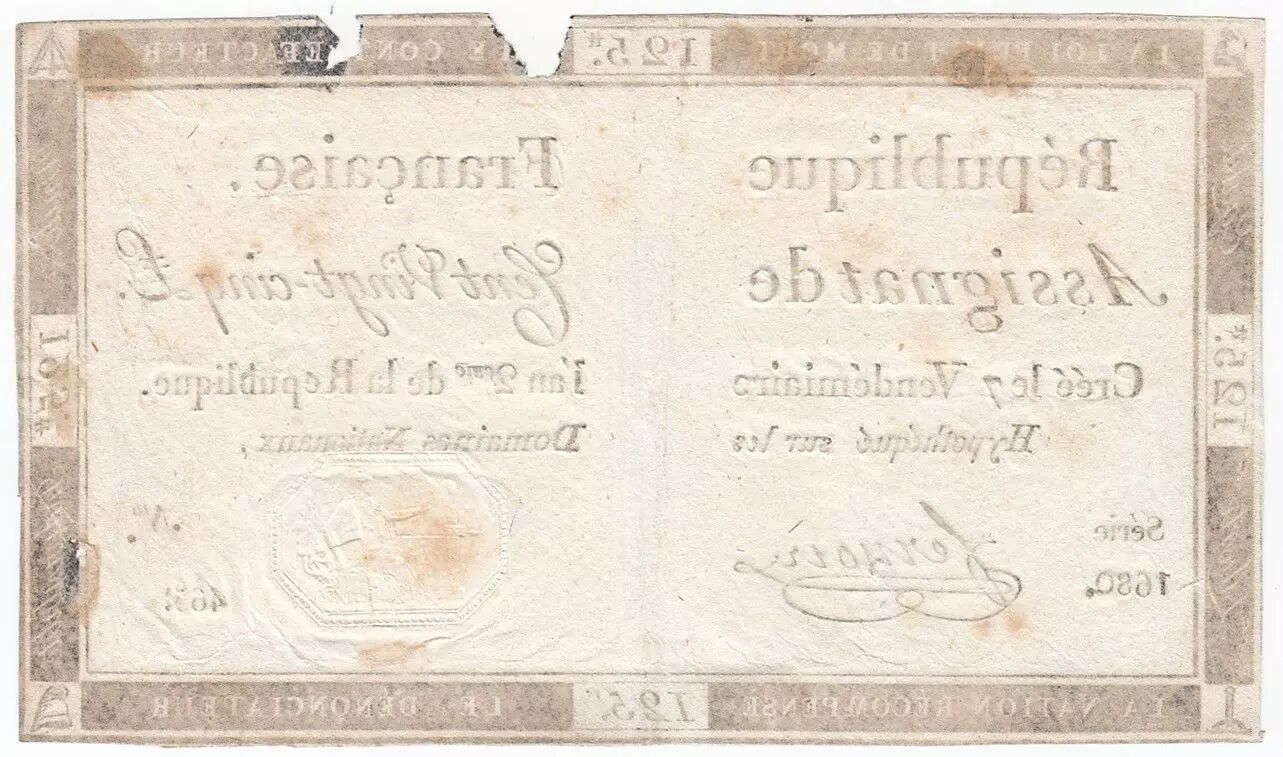 LA LOI PUNIT DE MORT 125.# LE CONTREFACTEUR
République Française.
Assignat de Cent Vingt-cinq £.
Créé le 7 Vendémiaire l'an 2eme de la République.
Hypothéqué sur les Domaines Nationaux,
Série
1680.
No.
125.#
125.#
LA NATION RÉCOMPENSE 125.# LE DÉNONCIATEUR